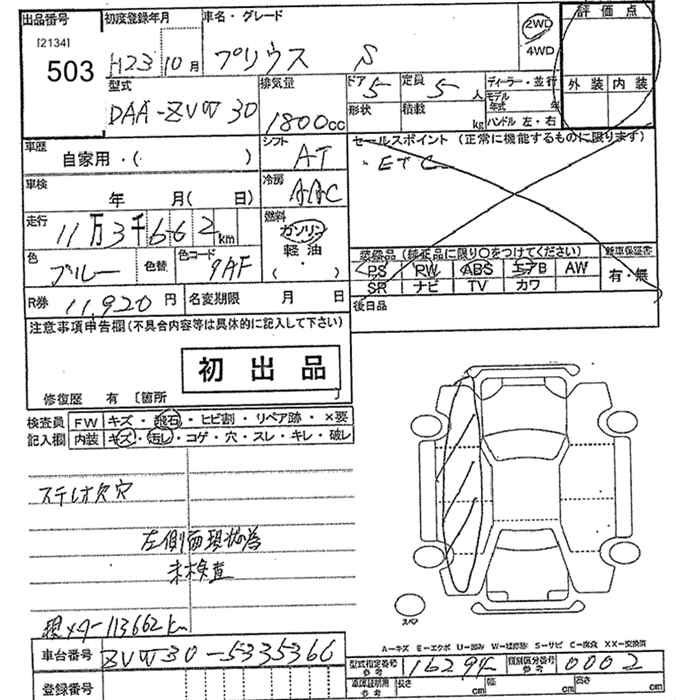 出品番号 初度登録年月 車名・グレード 評価点
[2134]
503 H23 10月 プリウス S 2WD 4WD 外装 内装
型式 排気量 ドア 定員 ディーラー・並行
DAA-ZVW30 1800cc 5 5人 モデル年式 年
形状 積載 kg ハンドル 左・右
車歴 シフト セールスポイント (正常に機能するものに限ります)
自家用・( ) AT ・ETC
車検 冷房
年 月( 日) AAC
走行 燃料
11万3千662km ガソリン 軽油 ( ・ )
装備品(純正品に限り○をつけてください) 新車保証書
色 色替 色コード PS PW ABS エアB AW 有・無
ブルー 9AF SR ナビ TV カワ
R券 11,920円 名変期限 月 日 後日品
注意事項申告欄(不具合内容等は具体的に記入して下さい)
初出品
修復歴 有〔箇所 〕
検査員 FW キズ・飛石・ヒビ割・リペア跡・×要
記入欄 内装 キズ・汚し・コゲ・穴・スレ・キレ・破レ
ステレオ欠穴
左側面現状為
未検査
現メター113662km
スペア
A-キズ E-エクボ U-凹み W-補修跡 S-サビ C-腐食 XX-交換済
車台番号 ZVW30-5335366 型式指定番号 参考 16294 類別区分番号 参考 0002
登録番号 車庫証明用 参考 長さ cm 幅 cm 高さ cm